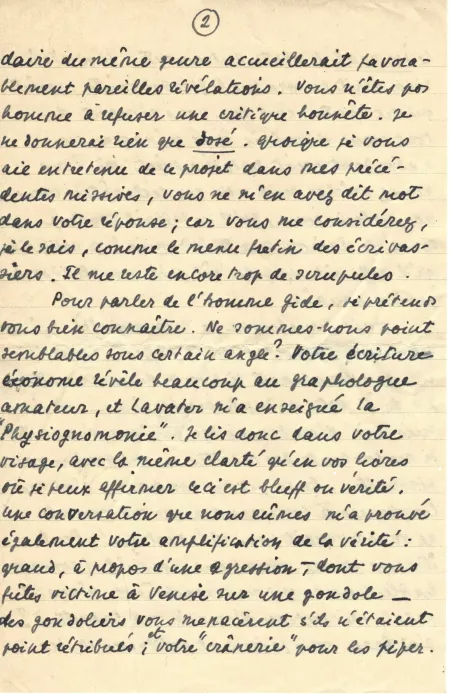 2
daire du même genre accueillerait favora-
blement pareilles révélations. Vous n'êtes pas
homme à refuser une critique honnête. Je
ne donnerai rien que dosé. Quoique je vous
aie entretenu de ce projet dans mes précé-
dentes missives, vous ne m'en avez dit mot
dans votre réponse; car vous me considérez,
je le sais, comme le menu fretin des écrivas-
siers. Il me reste encore trop de scrupules.
Pour parler de l'homme Gide, je prétends
vous bien connaître. Ne sommes-nous point
semblables sous certain angle? Votre écriture
économe révèle beaucoup au graphologue
amateur, et Lavater m'a enseigné la
"Physiognomonie". Je lis donc dans votre
visage, avec la même clarté qu'en vos livres
où je peux affirmer ceci est bluff ou vérité.
Une conversation que nous eûmes m'a prouvé
également votre amplification de la vérité:
quand, à propos d'une agression, dont vous
fûtes victime à Venise sur une gondole —
des gondoliers vous menacèrent s'ils n'étaient
point rétribués; et votre "crânerie" pour les piper.